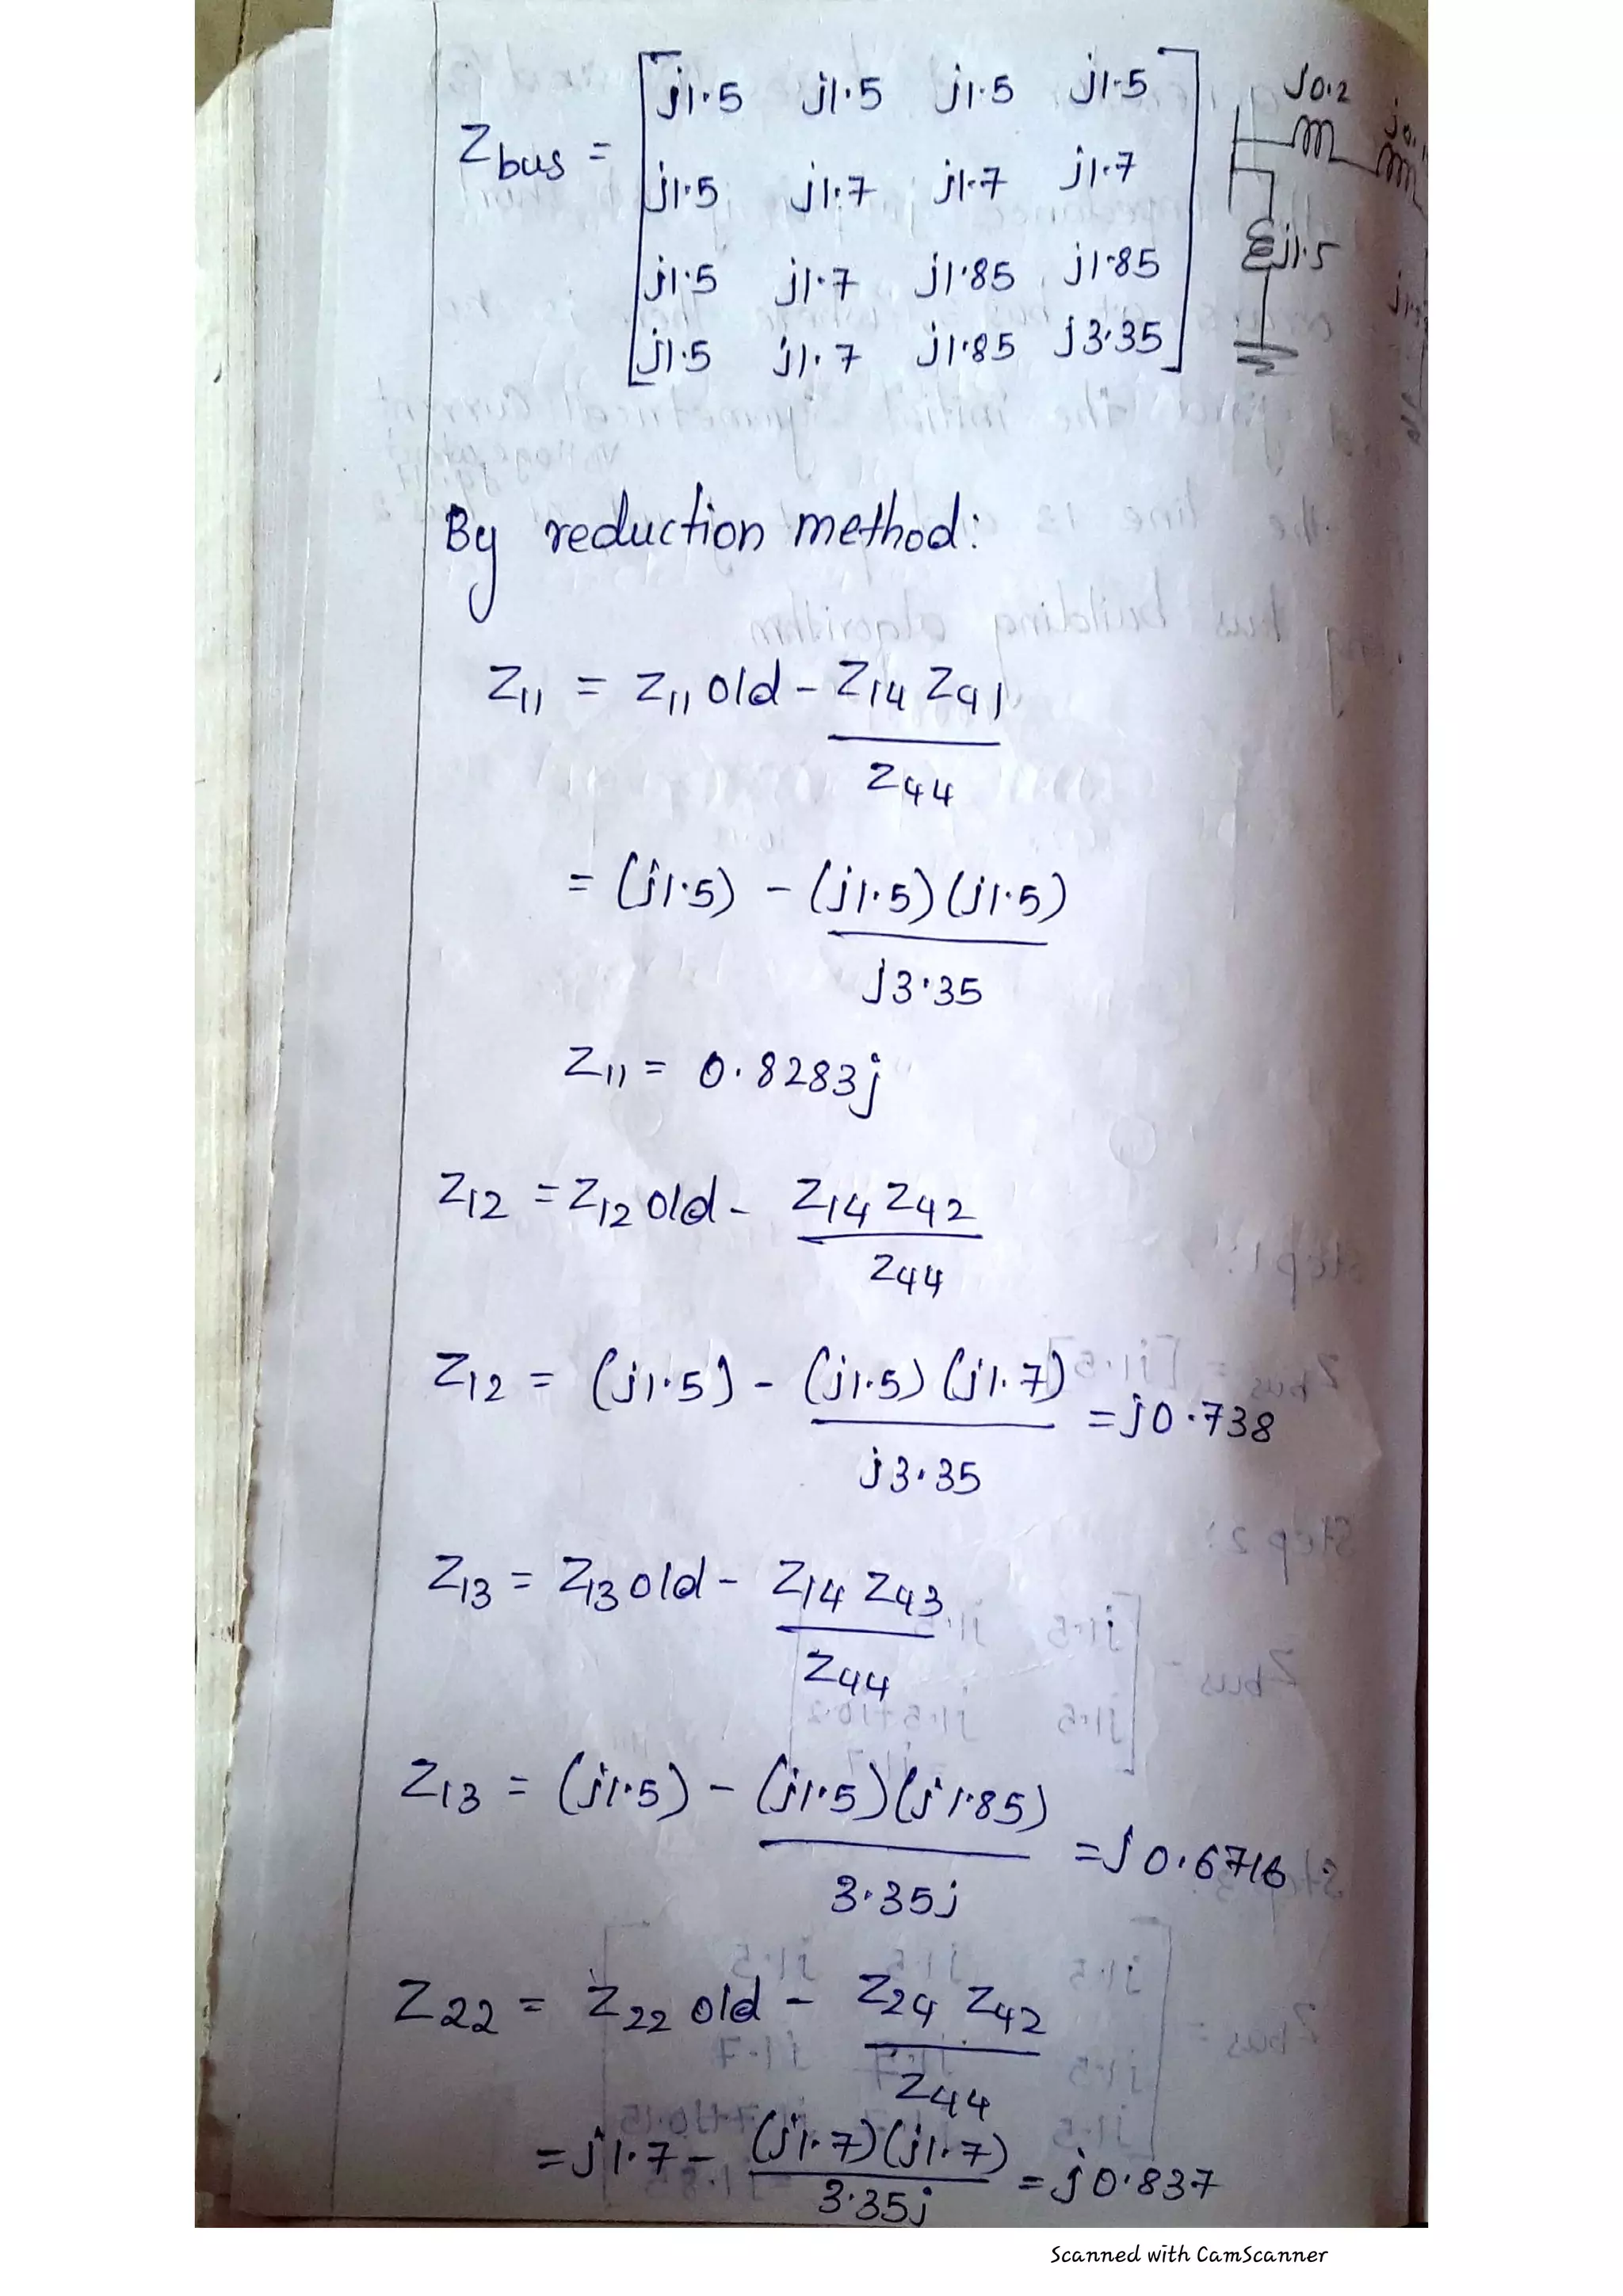 Zbus = [ j1.5 j1.5 j1.5 j1.5
j1.5 j1.7 j1.7 j1.7
j1.5 j1.7 j1.85 j1.85
j1.5 j1.7 j1.85 j3.35 ]
j0.2
j1.5
By reduction method:
Z11 = Z11 old - Z14 Z41
Z44
= (j1.5) - (j1.5)(j1.5)
j3.35
Z11 = 0.8283j
Z12 = Z12 old - Z14 Z42
Z44
Z12 = (j1.5) - (j1.5)(j1.7) = j0.738
j3.35
Z13 = Z13 old - Z14 Z43
Z44
Z13 = (j1.5) - (j1.5)(j1.85) = j0.6716
3.35j
Z22 = Z22 old - Z24 Z42
Z44
= j1.7 - (j1.7)(j1.7) = j0.837
3.35j
Scanned with CamScanner